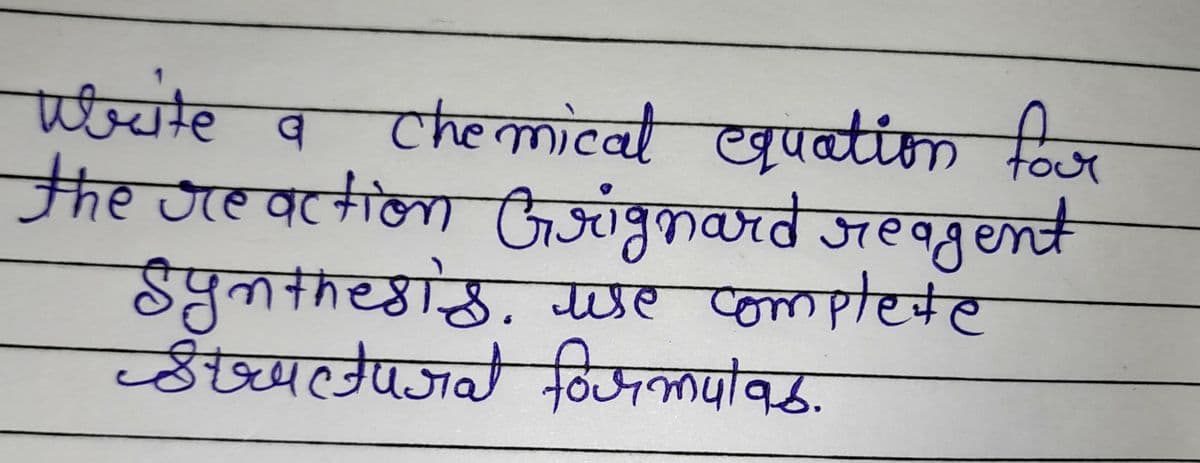 Write a chemical equation for
the reaction Grignard reagent
synthesis. use complete
structural formulas.